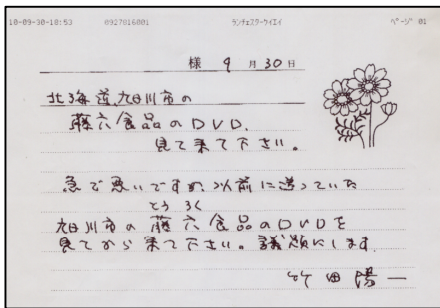 10-09-30-10:53 0927816801 ランチェスターケイエイ ページ 01
様 9月30日
北海道旭川市の
藤六食品のDVD、
見て来て下さい。
急で悪いですが、以前に送っていた
とう ろく
旭川市の藤六食品のDVDを
見てから来て下さい。議題にします。
竹田陽一